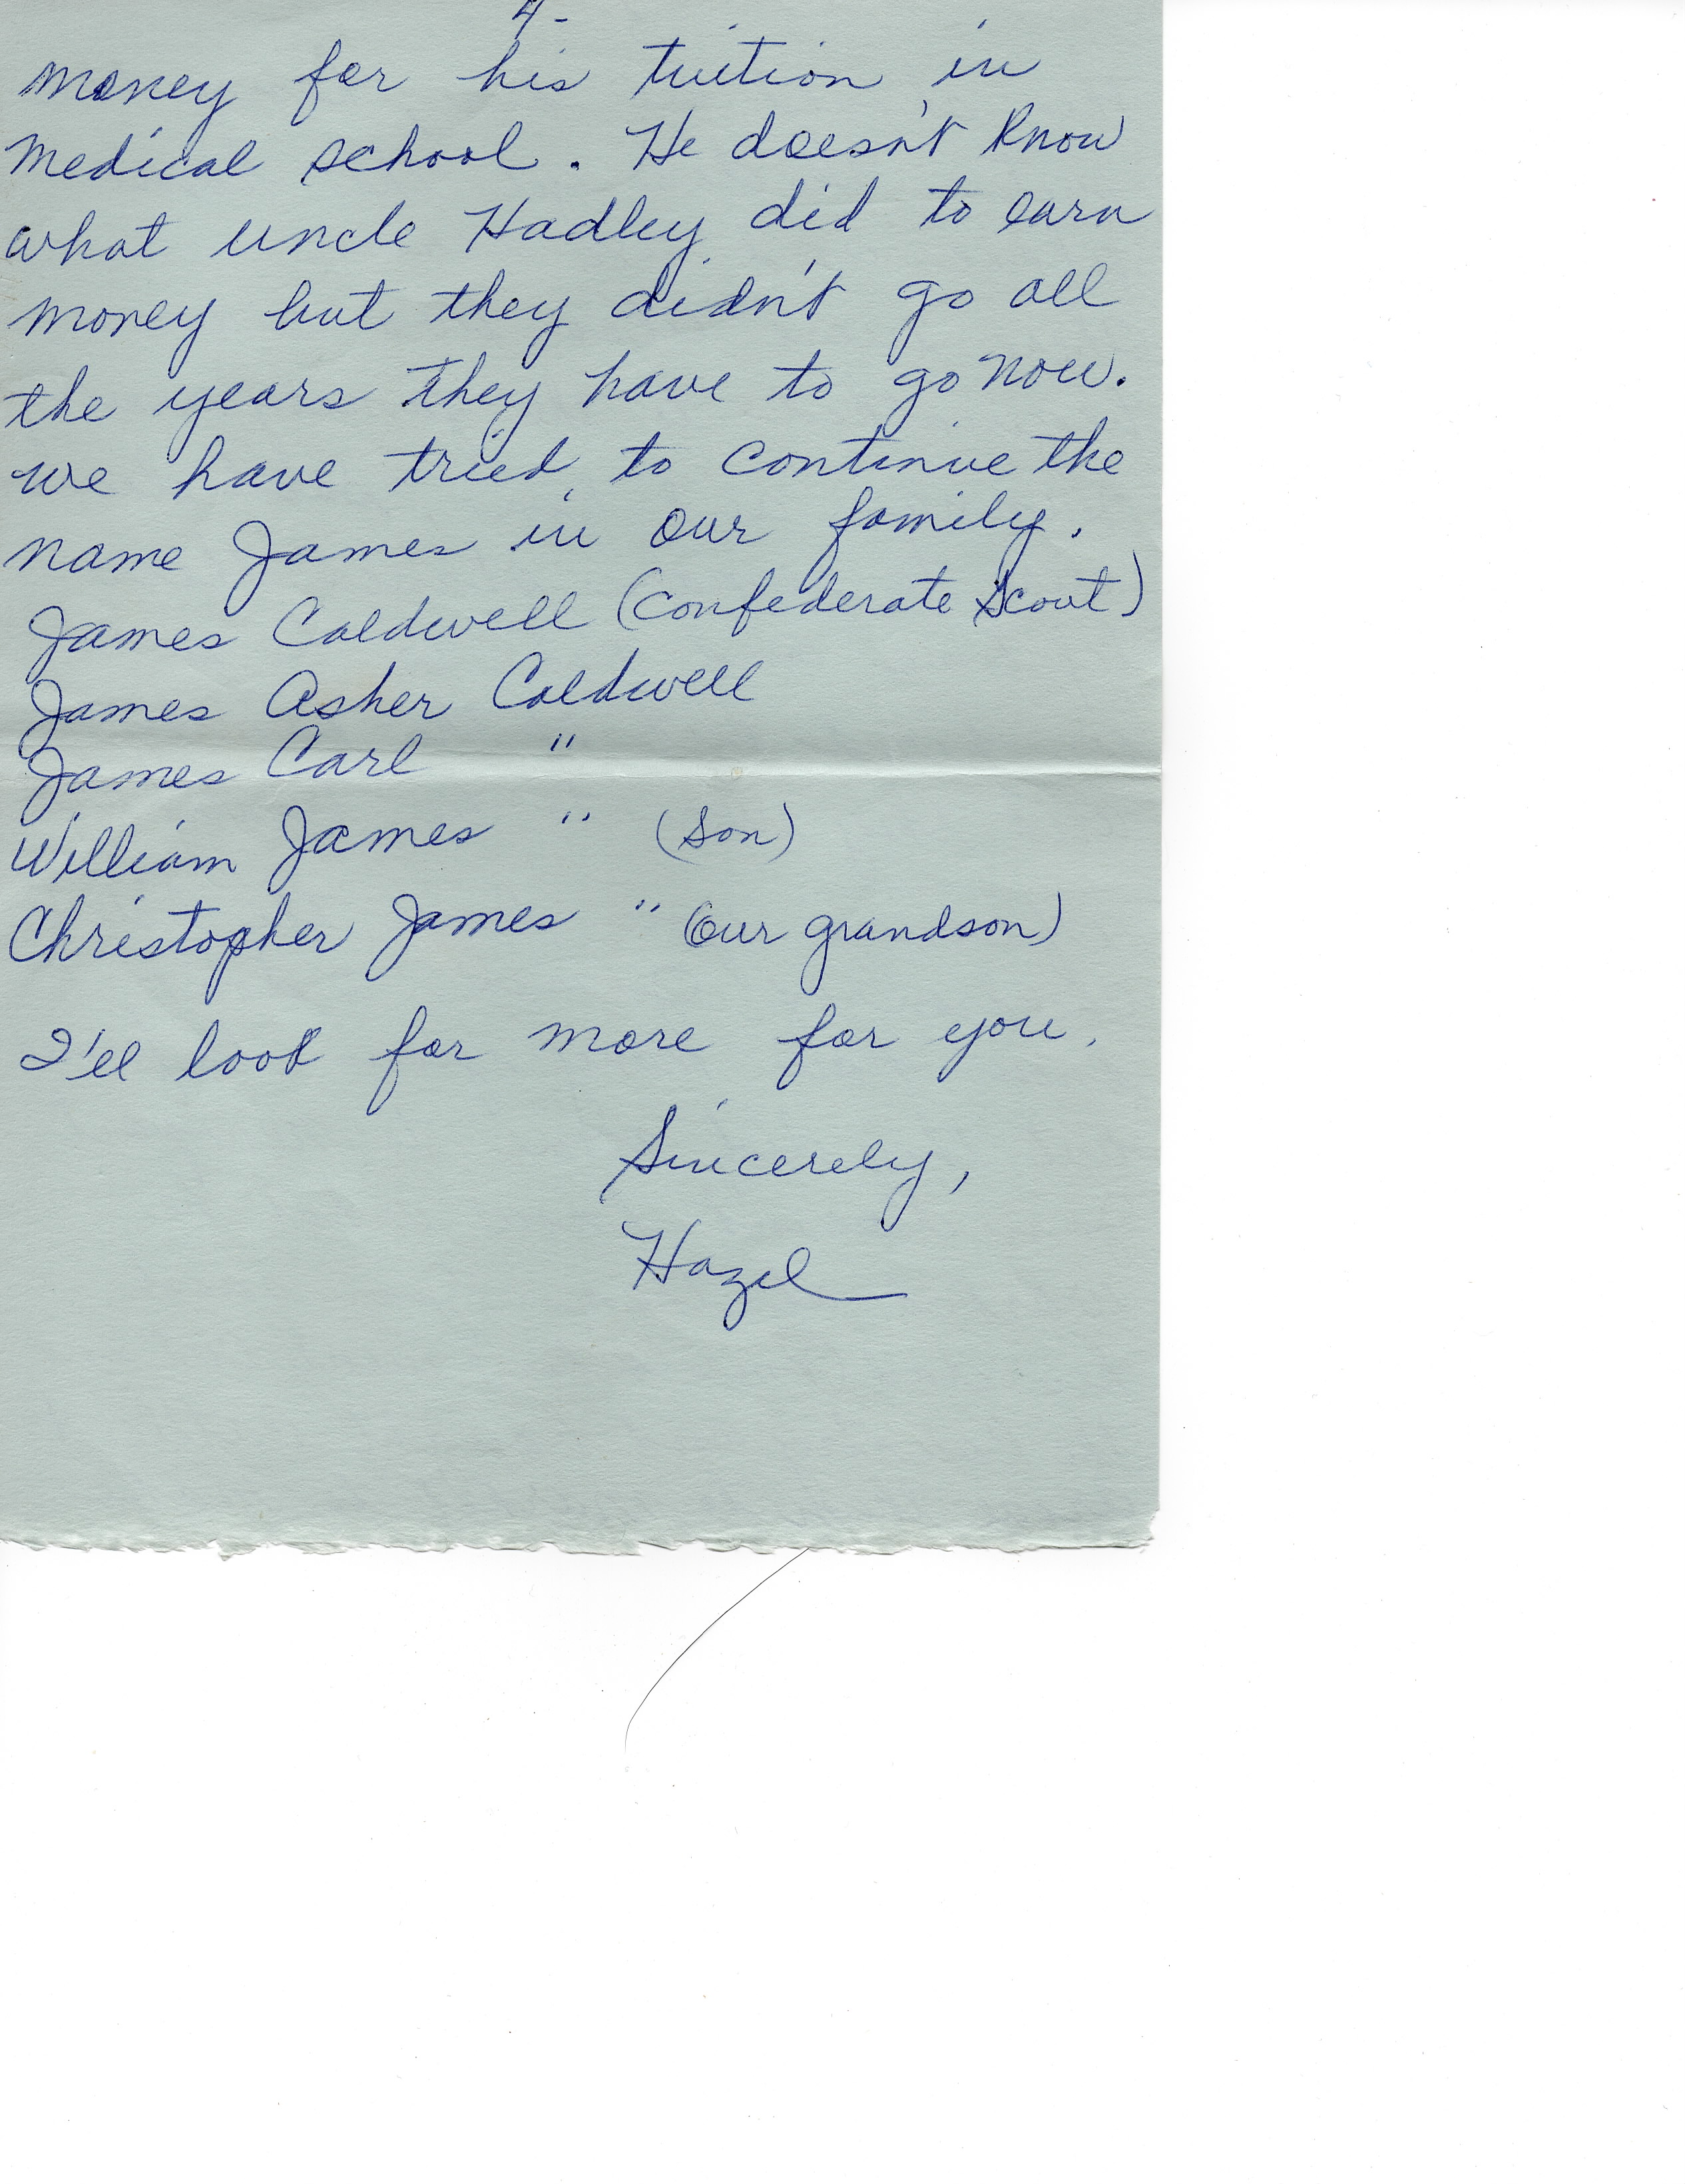 4-
money for his tuition in
medical school. He doesn't know
what uncle Hadley did to earn
money but they didn't go all
the years they have to go now.
we have tried to continue the
name James in our family.
James Caldwell (Confederate Scout)
James Asher Caldwell
James Carl "
William James " (son)
Christopher James " (Our grandson)
I'll look for more for you.
Sincerely,
Hazel